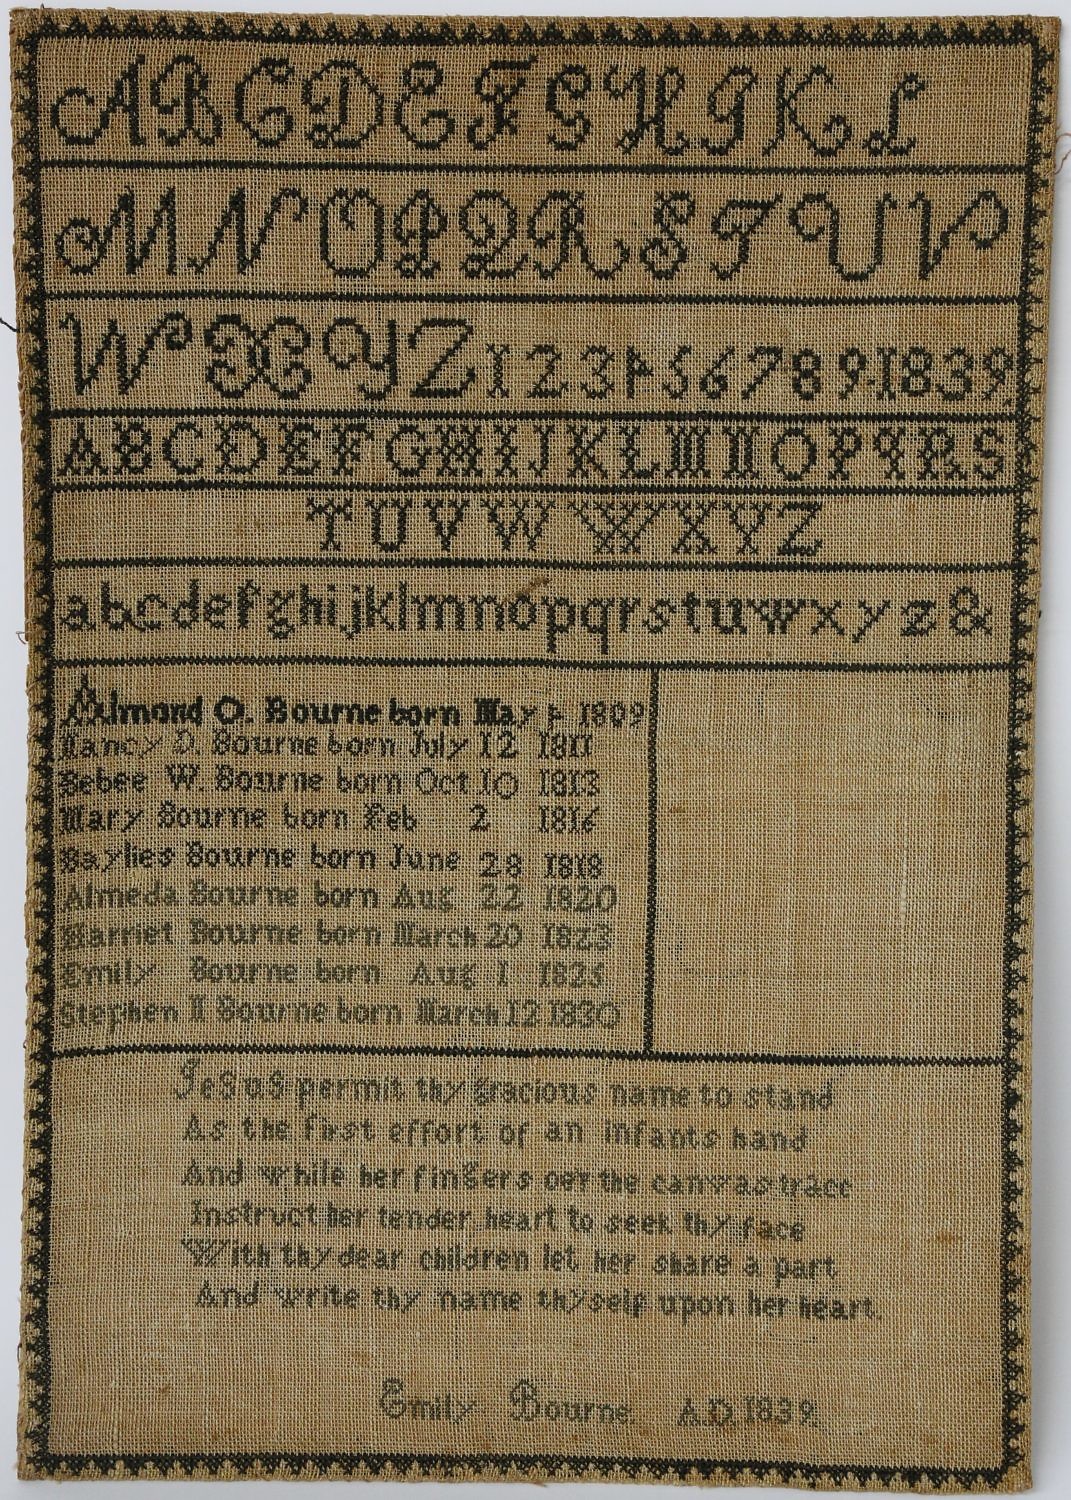 A B C D E F G H I K L
M N O P Q R S T U V
W X Y Z 1 2 3 4 5 6 7 8 9. 1839.
A B C D E F G H I J K L M N O P q R S
T U V W W X Y Z
a b c d e f g h i j k l m n o p q r s t u w x y z &
Almond O. Bourne born May 4 1809
Nancy D. Bourne born July 12 1811
Bebee W. Bourne born Oct 10 1813
Mary Bourne born Feb 2 1816
Baylies Bourne born June 28 1818
Almeda Bourne born Aug 22 1820
Harriet Bourne born March 20 1823
Emily Bourne born Aug 1 1825
Stephen N Bourne born March 12 1830
Jesus permit thy gracious name to stand
As the first effort of an infants hand
And while her fingers oer the canvas trace
Instruct her tender heart to seek thy face
With thy dear children let her share a part
And write thy name thyself upon her heart.
Emily Bourne. A.D. 1839.